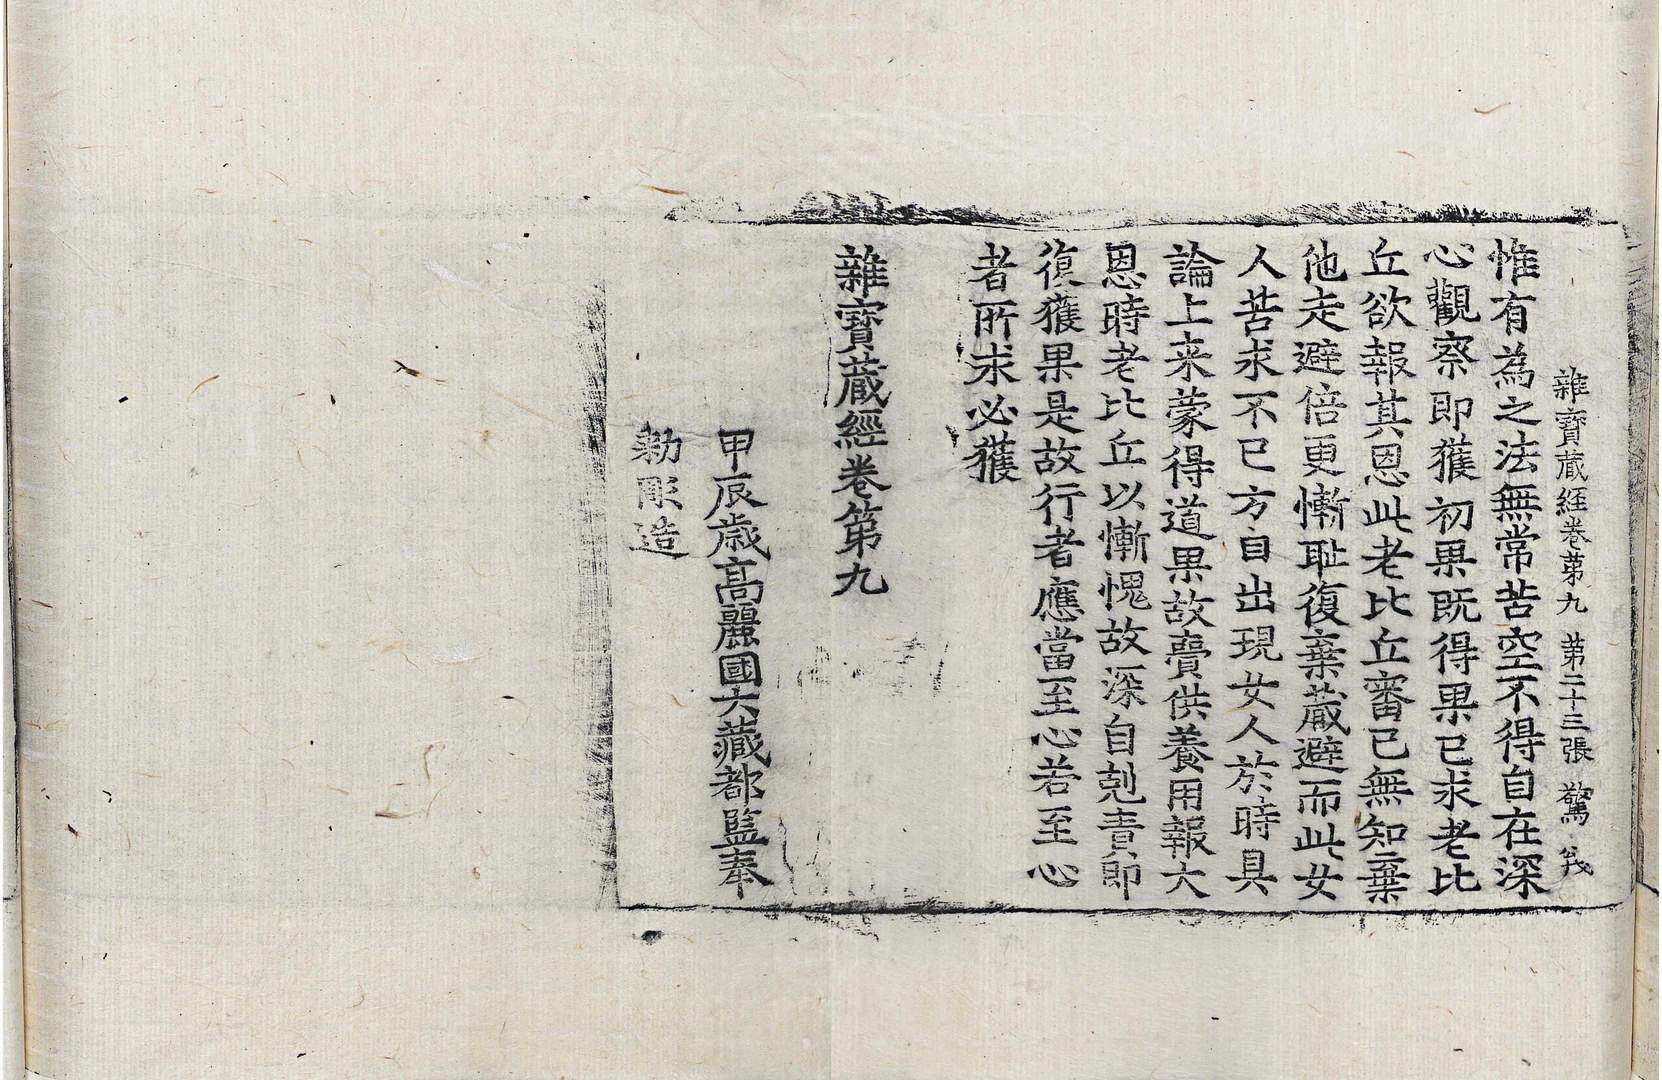 雜寶藏經卷第九 第二十三張 驚
惟有為之法無常苦空不得自在深
心觀察即獲初果既得果已求老比
丘欲報其恩此老比丘審己無知棄
他走避倍更慚耻復棄藏避而此女
人苦求不已方自出現女人於時具
論上来蒙得道果故賷供養用報大
恩時老比丘以慚愧故深自剋責即
復獲果是故行者應當至心若至心
者所求必獲
雜寶藏經卷第九
甲辰歲高麗國大藏都監奉
勑彫造